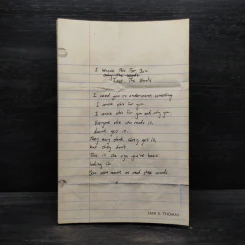 I Wrote This For You
only the words
Love The Words
I need you to understand something.
I wrote this for you.
I wrote this for you and only you.
Everyone else who reads it,
doesn't get it.
They may think they get it,
but they don't.
This is the sign you've been
looking for.
You were meant to read these words.
IAIN S. THOMAS